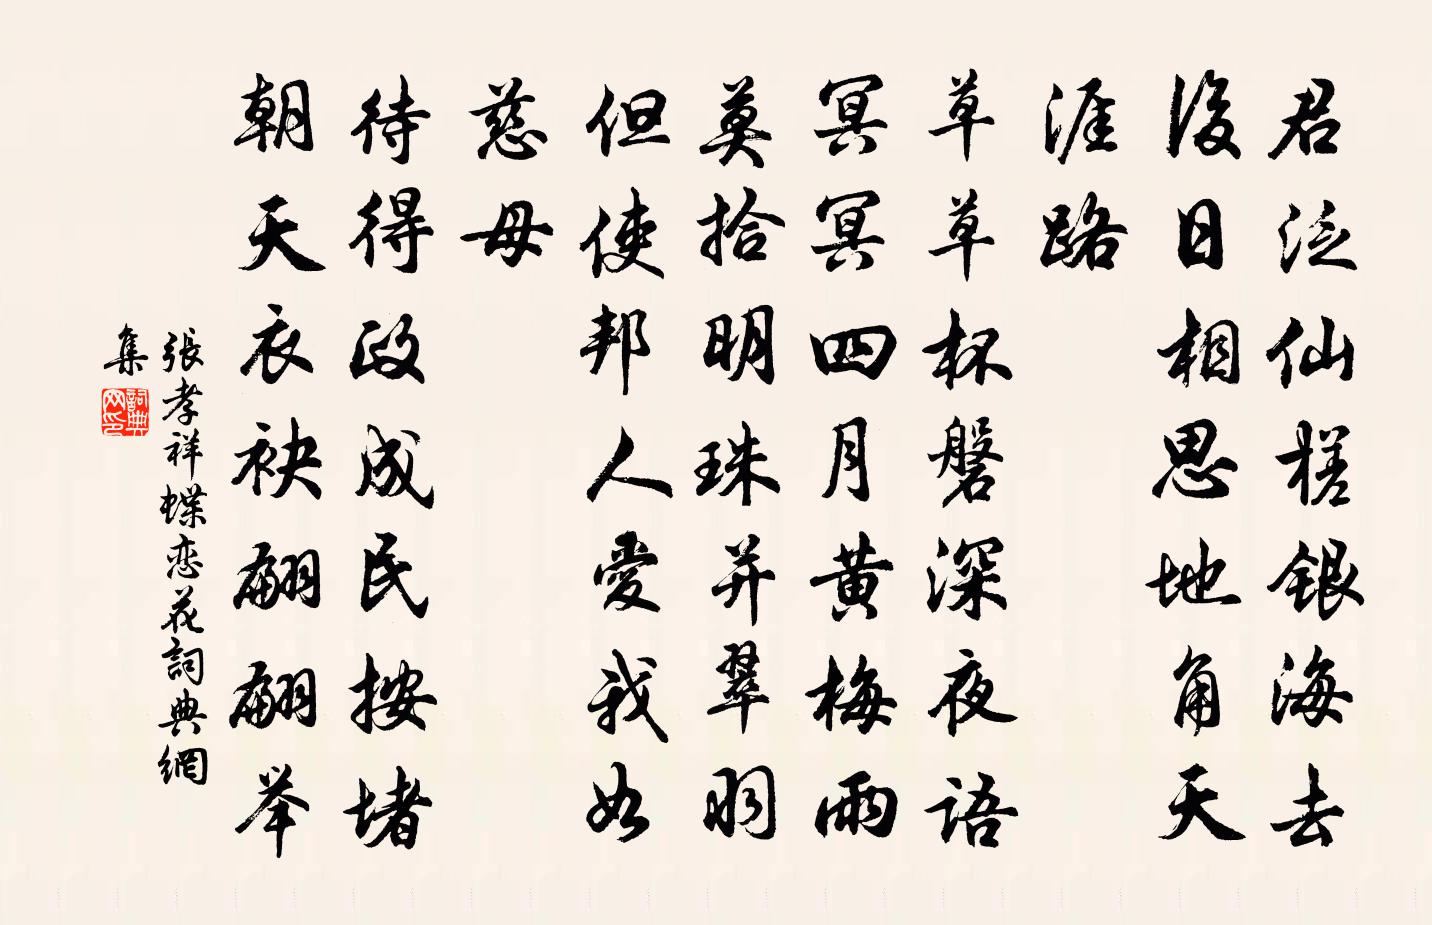 君泛仙槎銀海去
後日相思地角天
涯路
草草杯盤深夜語
冥冥四月黄梅雨
莫拾明珠并翠羽
但使邦人愛我如
慈母
待得政成民按堵
朝天衣袂翩翩举
張孝祥蝶恋花詞典網
集
詞典网印